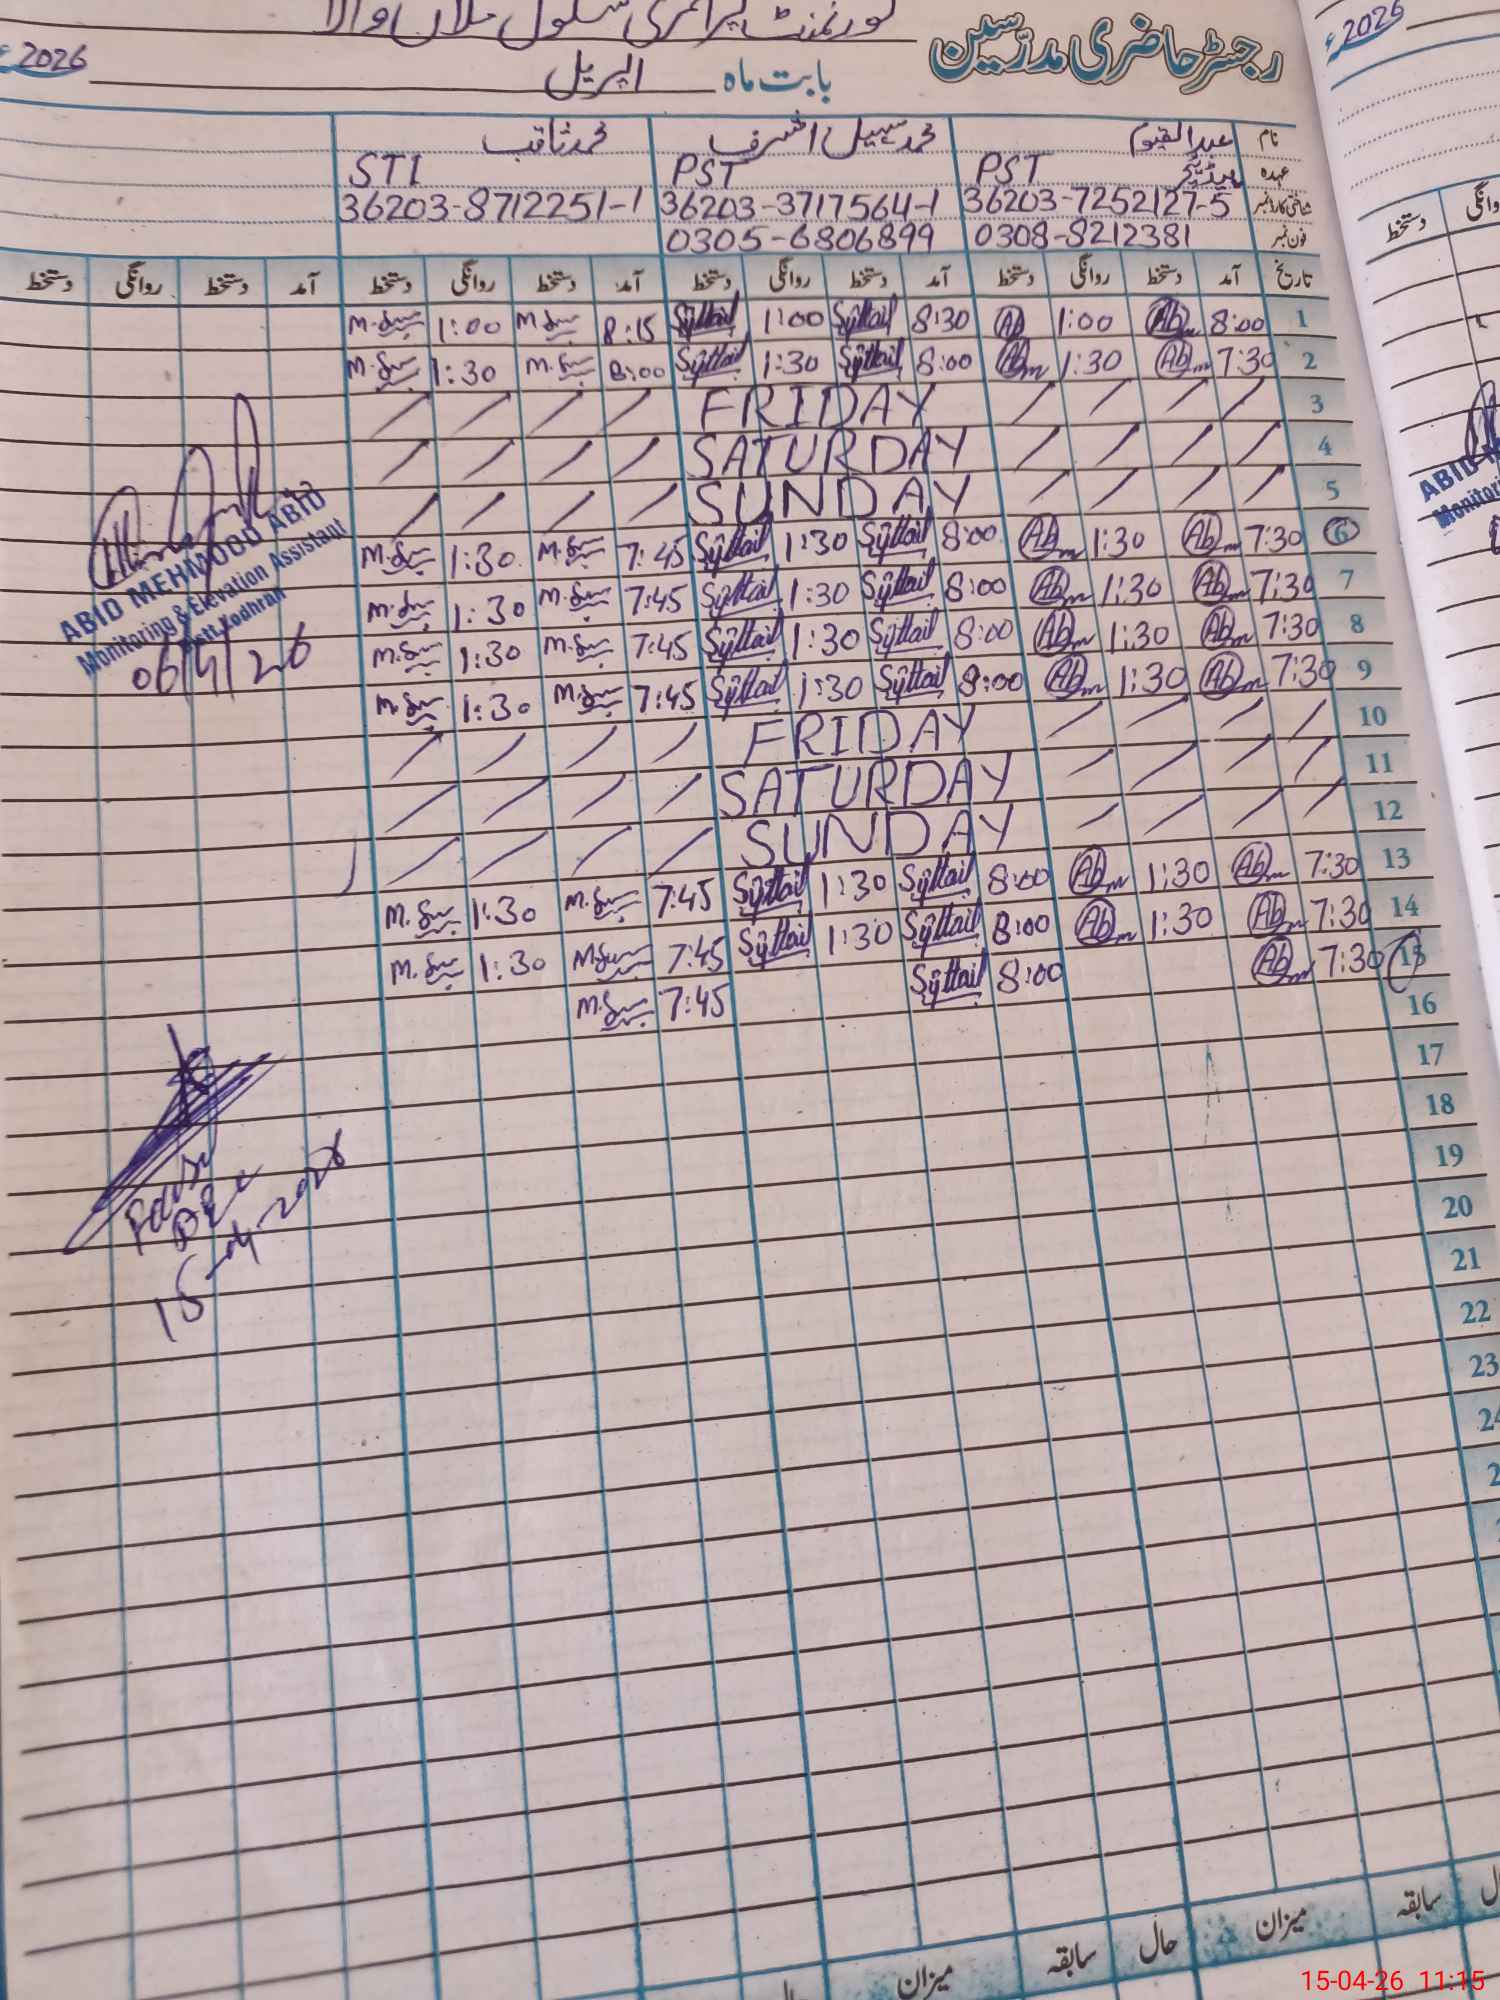 رجسٹر حاضری مدرّسین گورنمنٹ پرائمری سکول ملاں والا
بابت ماہ اپریل 2026ء
نام عبدالقیوم محمد سہیل اشرف محمد ثاقب
عہدہ ہیڈ ٹیچر PST PST STI
شناختی کارڈ نمبر 36203-7252127-5 36203-3717564-1 36203-8712251-1
فون نمبر 0308-8212381 0305-6806899
تاریخ آمد دستخط روانگی دستخط آمد دستخط روانگی دستخط آمد دستخط روانگی دستخط آمد دستخط روانگی دستخط
1 8:00 Ab 1:00 Ab 8:30 1:00 8:15 1:00
2 7:30 Ab 1:30 Ab 8:00 1:30 8:00 1:30
3 FRIDAY
4 SATURDAY
5 SUNDAY
6 7:30 Ab 1:30 Ab 8:00 1:30 7:45 1:30
7 7:30 Ab 1:30 Ab 8:00 1:30 7:45 1:30
8 7:30 Ab 1:30 Ab 8:00 1:30 7:45 1:30
9 7:30 Ab 1:30 Ab 8:00 1:30 7:45 1:30
10 FRIDAY
11 SATURDAY
12 SUNDAY
13 7:30 Ab 1:30 Ab 8:00 1:30 7:45 1:30
14 7:30 Ab 1:30 Ab 8:00 1:30 7:45 1:30
15 7:30 Ab 8:00 7:45
16
17
18
19
20
21
22
23
ABID MEHMOOD ABID
Monitoring & Elevation Assistant
Distt. Lodhran
06/4/26
15-04-2026
سابقہ میزان حال سابقہ میزان
2026ء
روانگی دستخط
15-04-26 11:15